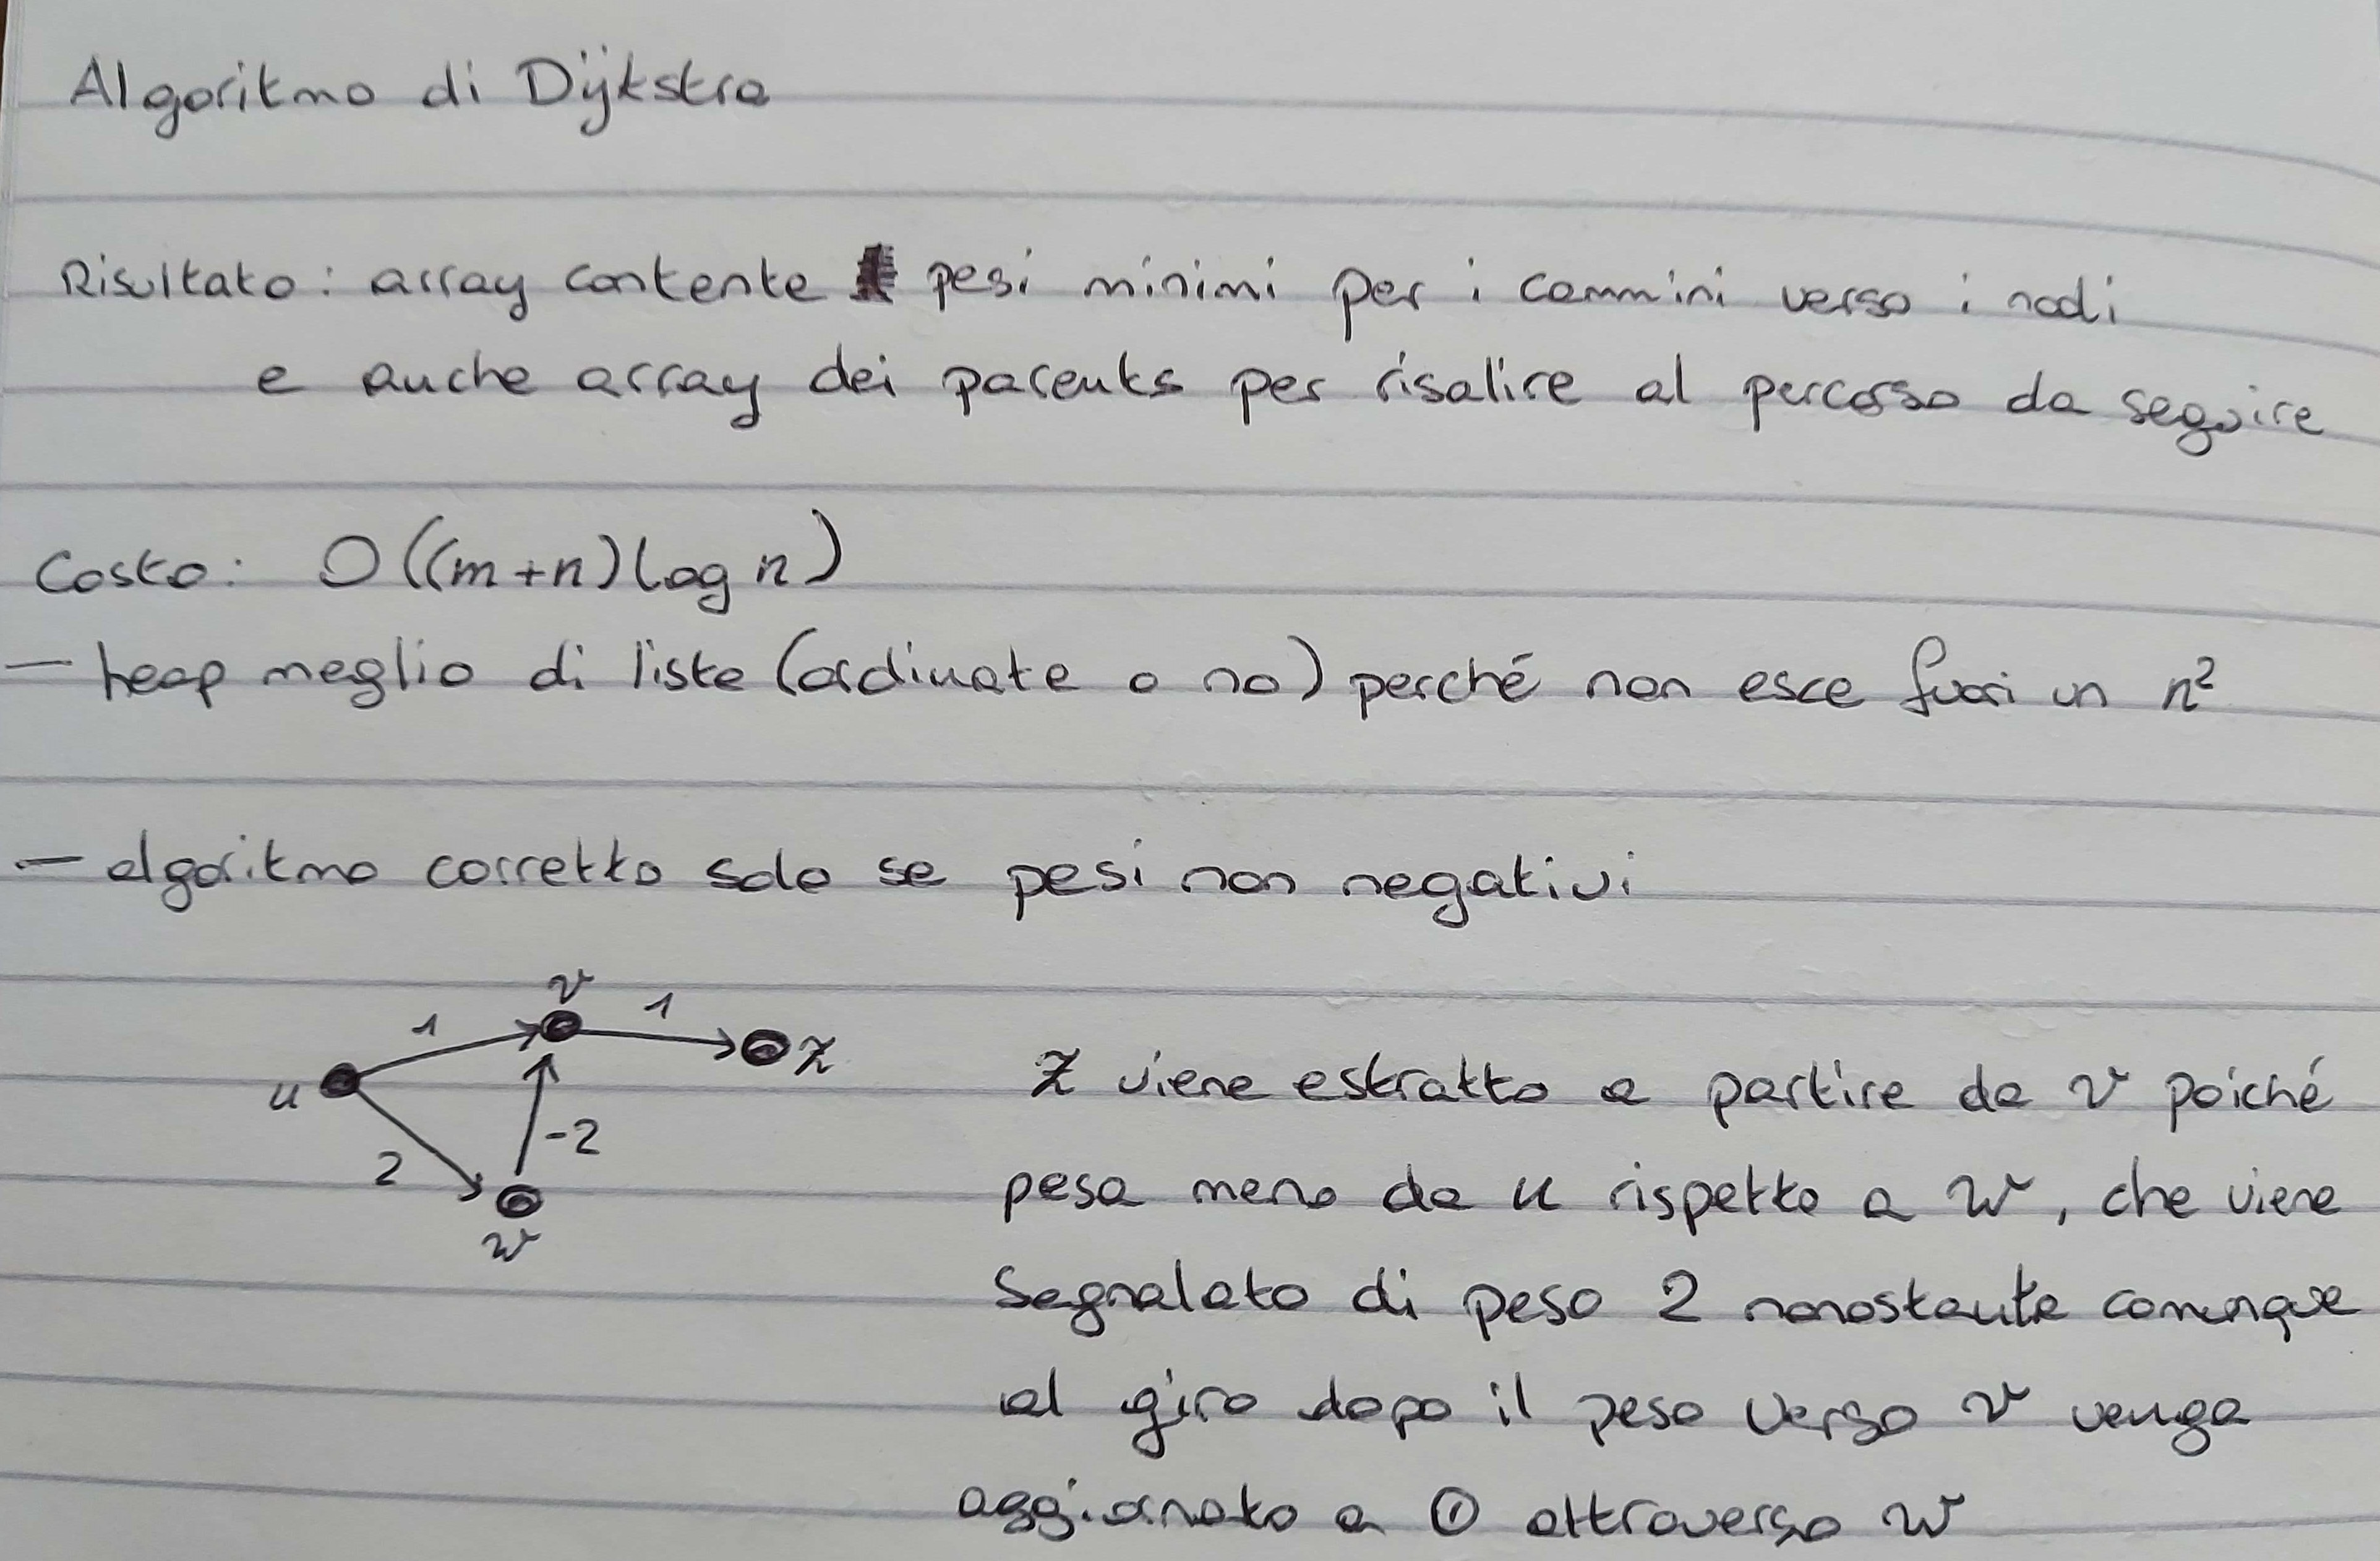 Algoritmo di Dijkstra
Risultato: array contente pesi minimi per i cammini verso i nodi
e anche array dei parents per risalire al percorso da seguire
Costo: O((m+n)log n)
— heap meglio di liste (ordinate o no) perché non esce fuori un n²
— algoritmo corretto solo se pesi non negativi
v
1
1
z
u
-2
2
w
z viene estratto a partire da v poiché
pesa meno da u rispetto a w, che viene
segnalato di peso 2 nonostante comunque
al giro dopo il peso verso v venga
aggiornato a 0 attraverso w